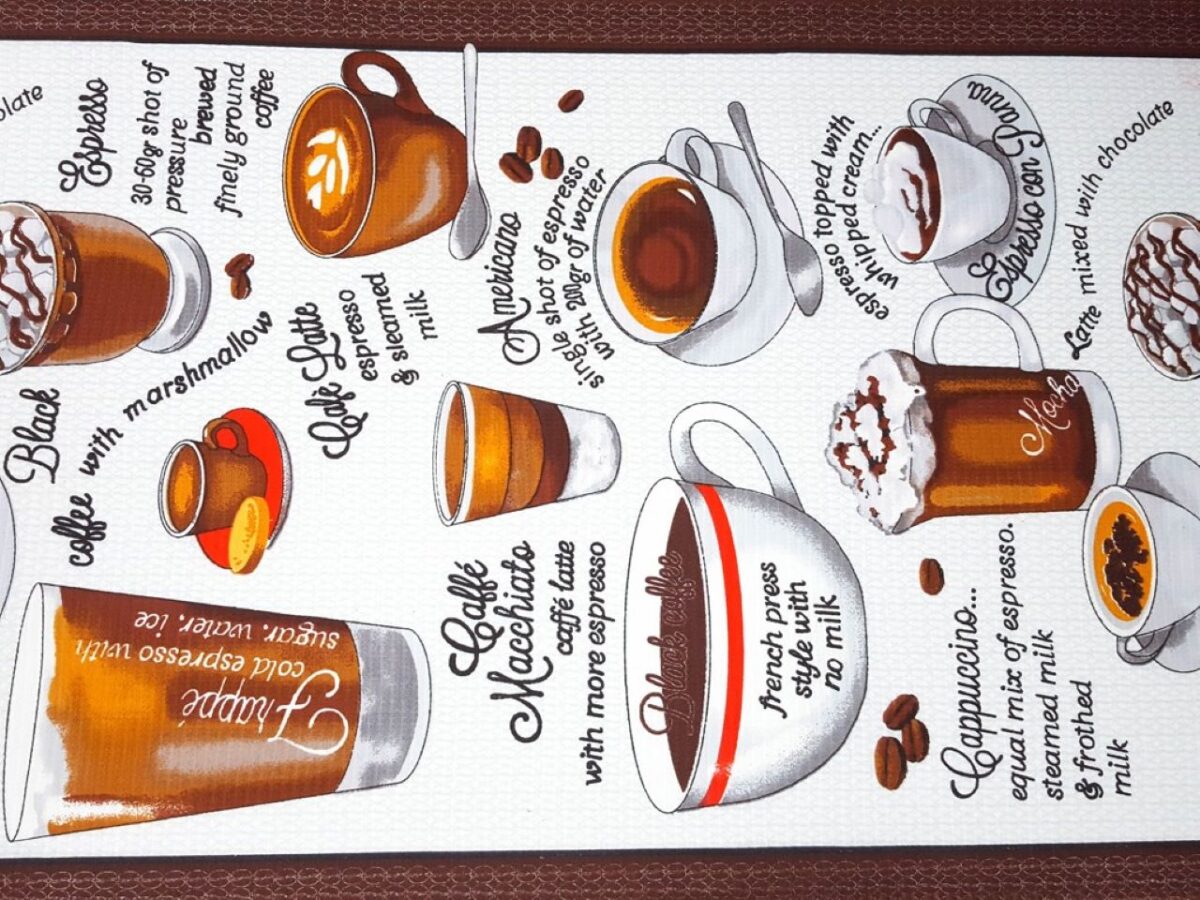 olate
Espresso
30-60gr shot of
pressure
brewed
finely ground
coffee
Black
coffee with marshmallow
Café Latte
espresso
& steamed
milk
Americano
single shot of espresso
with 200gr of water
espresso topped with
whipped cream...
Espresso con Panna
Latte mixed with chocolate
Mocha
Frappé
cold espresso with
sugar, water, ice
Caffé
Macchiato
caffé latte
with more espresso
Black coffee
french press
style with
no milk
Cappuccino...
equal mix of espresso.
steamed milk
& frothed
milk